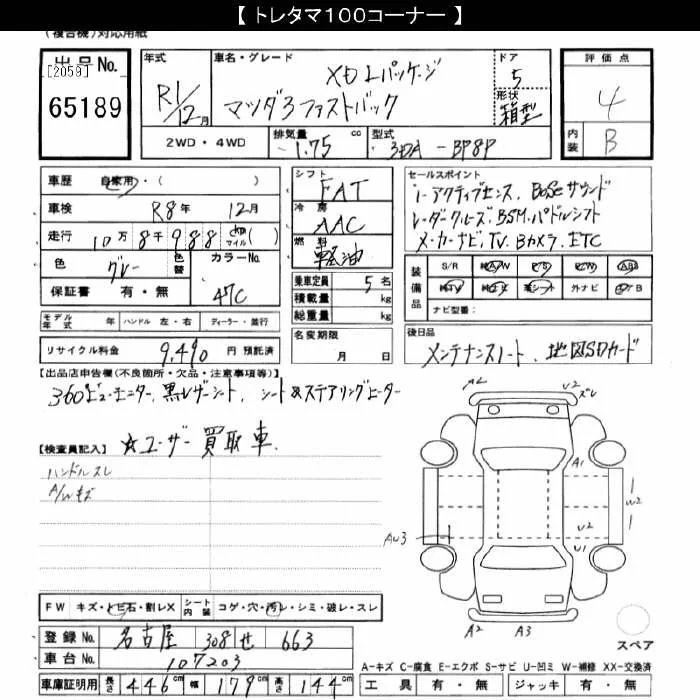 【 トレタマ100コーナー 】
(複合機)対応用紙
出品No. [2059] 65189
年式 R1/12月
車名・グレード XD Lパッケージ
マツダ3 ファストバック
ドア 5
形状 箱型
評価点 4
内装 B
2WD・4WD 排気量 1.75 cc 型式 3DA-BP8P
車歴 自家用・( )
車検 R8年 12月
走行 10万8千988 km マイル( )
色 グレー 色替 カラーNo. 47C
保証書 有・無
モデル年式 年 ハンドル 左・右 ディーラー・並行
リサイクル料金 9,490 円 預託済
シフト FAT
冷房 AAC
燃料 軽油
乗車定員 5 名
積載量 kg
総重量 kg
名変期限 月 日
セールスポイント
i-アクティブセンス、BOSEサウンド
レーダークルーズ、BSM、パドルシフト
メーカーナビ、TV、Bカメラ、ETC
装備品 S/R A/W P/S P/W AB
純TV 純ナビ 革シート 外ナビ エアB
ナビ型番:
後日品
メンテナンスノート、地図SDカード
【出品店申告欄(不良箇所・欠品・注意事項等)】
360°ビューモニター、黒レザーシート、シート&ステアリングヒーター
【検査員記入】 ☆ユーザー買取車
ハンドルスレ
A/Wキズ
A2 U2 ズレ
A1
W2
AU3 U2
U1
A2 A3
スペア
FW キズ・トビ石・割レX シート内装 コゲ・穴・汚レ・シミ・破レ・スレ
登録No. 名古屋 308 せ 663
車台No. 107203
A-キズ C-腐食 E-エクボ S-サビ U-凹ミ W-補修 XX-交換済
車庫証明用 長さ 446 cm 幅 179 cm 高さ 144 cm 工具 有・無 ジャッキ 有・無